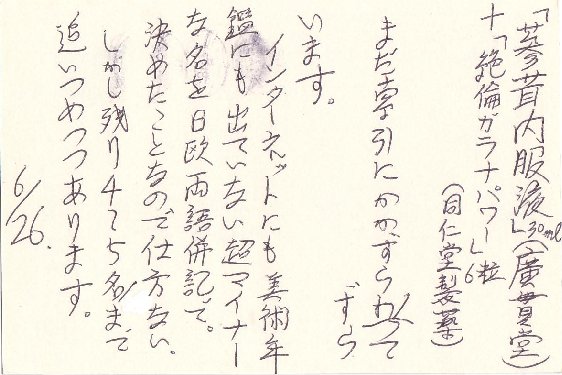 「蔘茸内服液」30ml(廣貫堂)
+「絶倫ガラナパワー」6粒
(同仁堂製薬)
まだ索引にかかずらわって
ずら
います。
インターネットにも美術年
鑑にも出ていない超マイナー
な名を日欧両語併記で。
決めたことなので仕方ない。
しかし残り4〜5名まで
追いつめつつあります。
6/26.